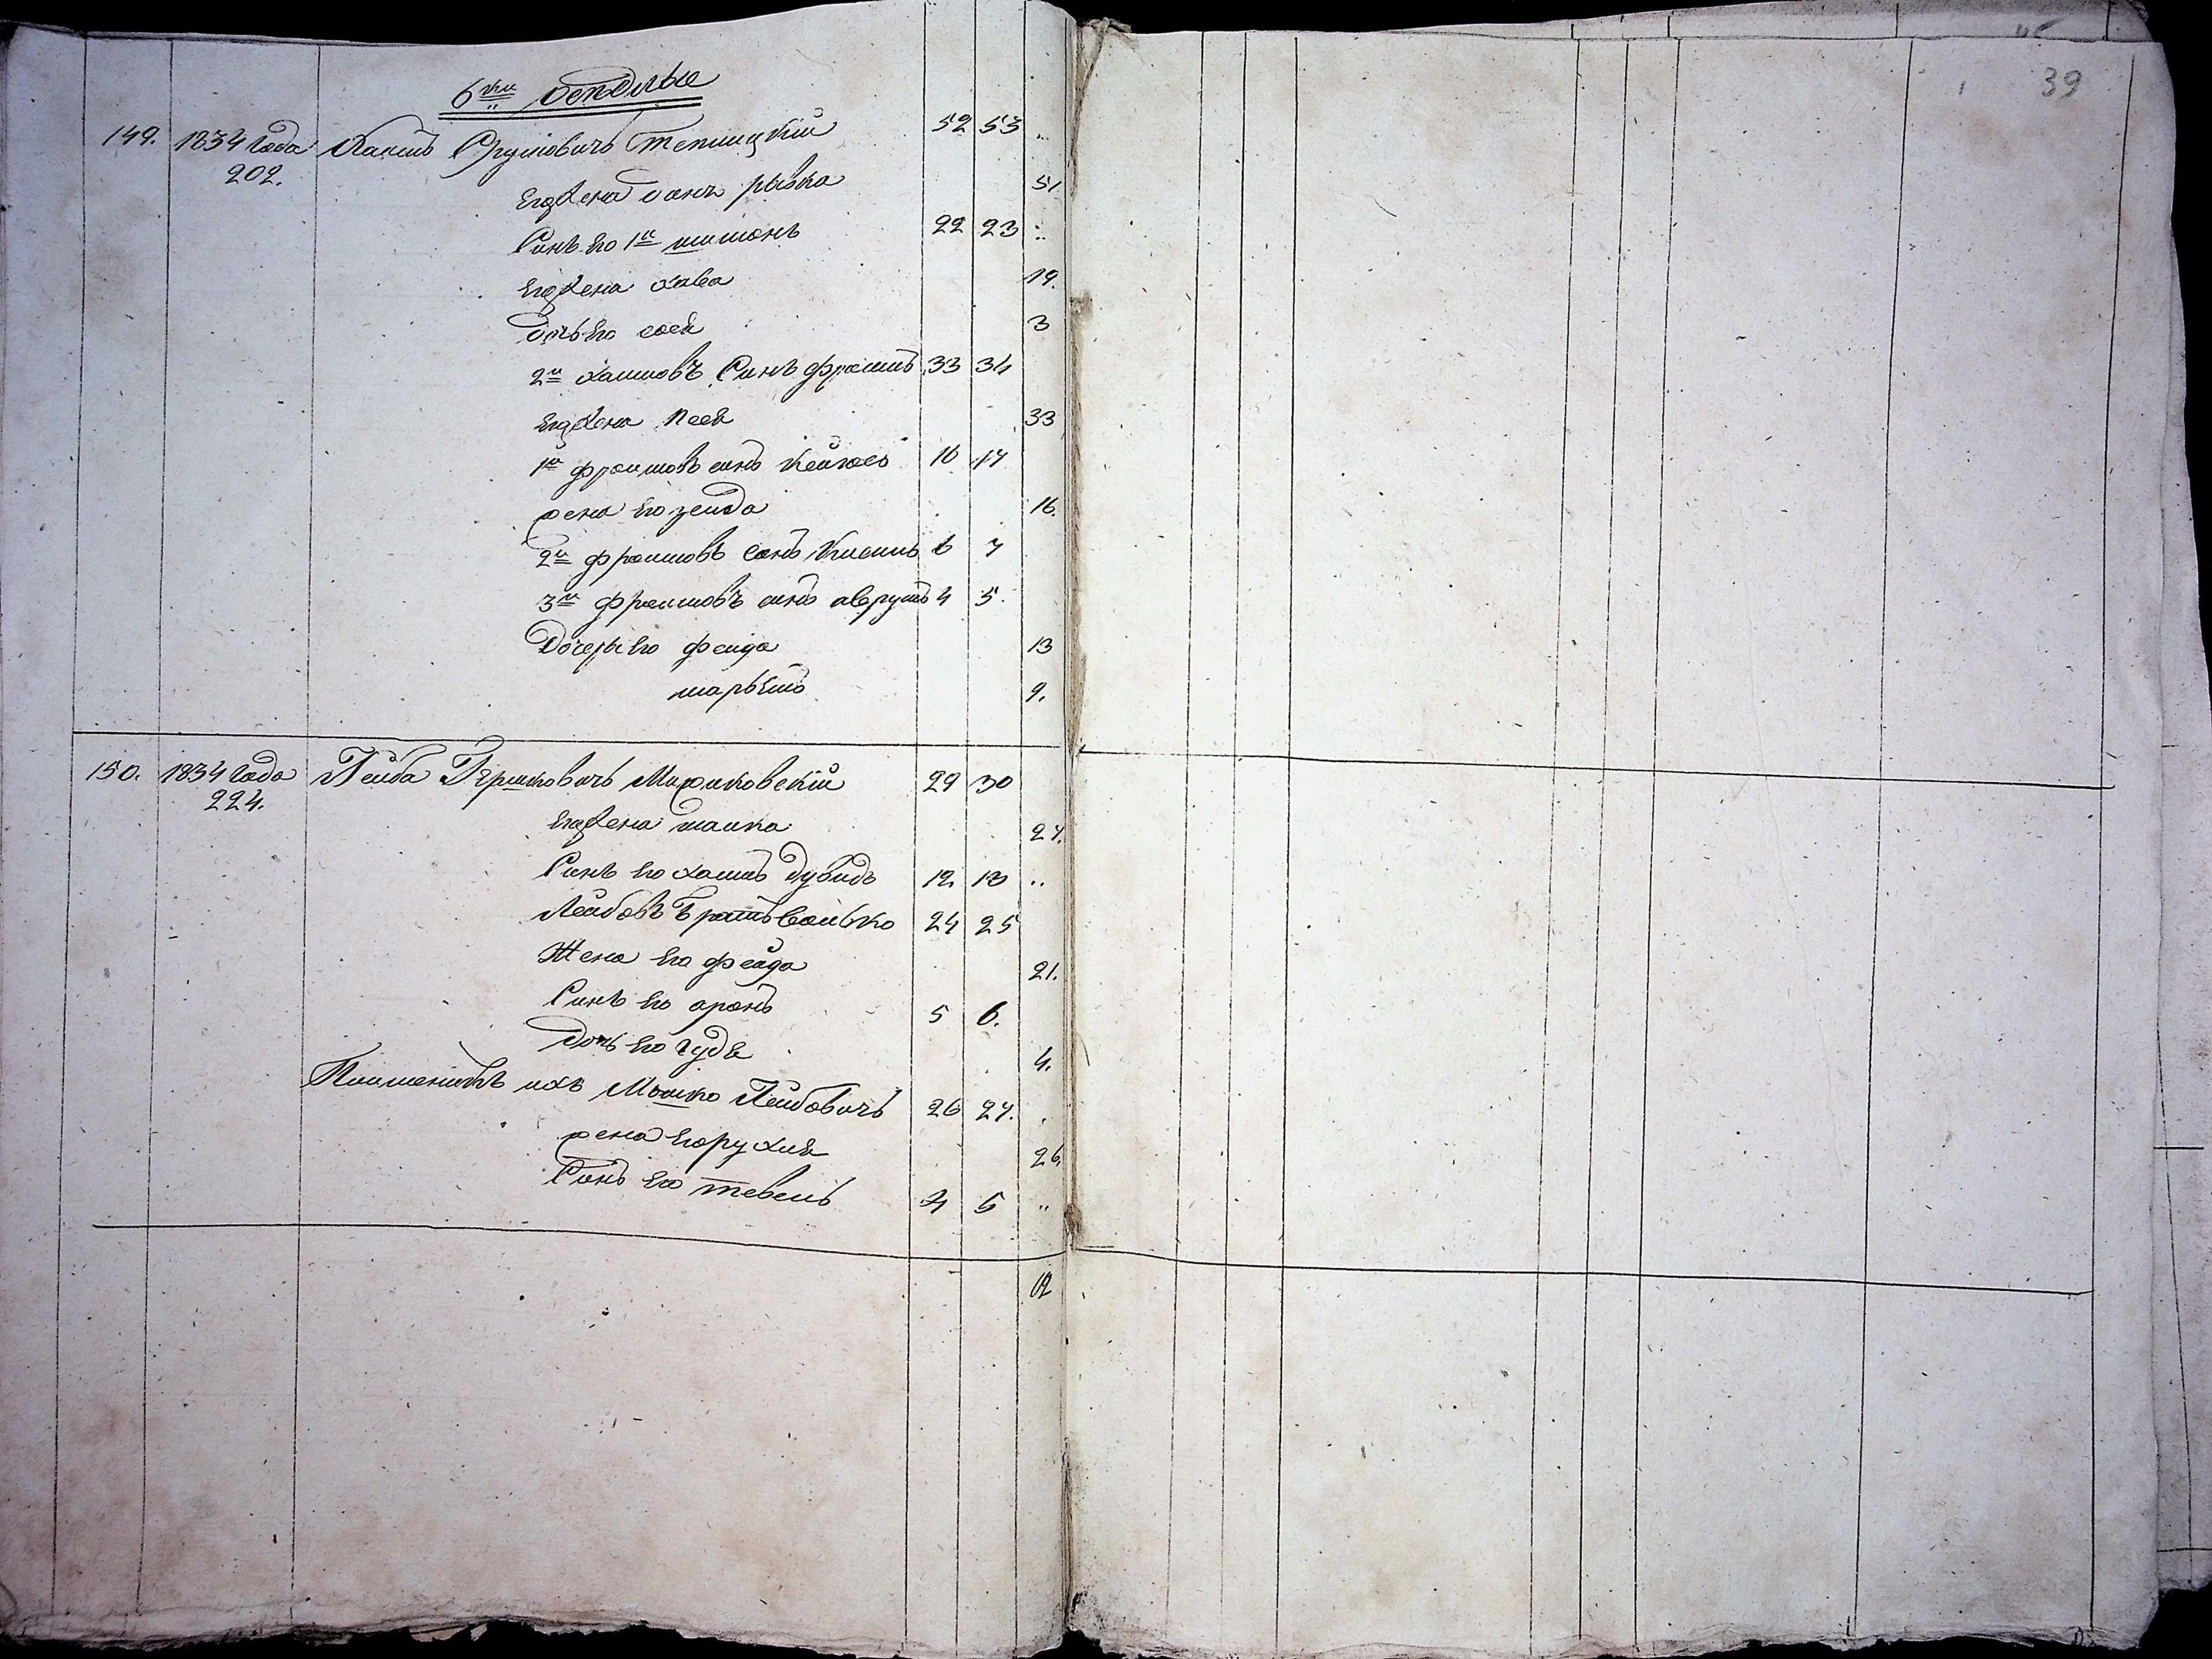 39
6ти
149. 1834 года Хаимъ Сруловичъ Теплицкій 52 53 ..
202.
Его жена рывка 51
Сынъ его 1й шимонъ 22 23 ..
Его жена хава 19.
Дочь его сося 3
2й хаимовъ Сынъ фроимъ 33 34
Его жена песя 33
1й фроимовъ сынъ 16 17
жена его зейда 16.
2й фроимовъ сынъ 6 7
3й фроимовъ сынъ аврумъ 4 5.
Дочеры его фейга 13
марьемъ 9.
150. 1834 года Лейба Гершковичъ 29 30
224.
Его жена 27.
Сынъ его хаимъ Дувидъ 12 13 ..
Лейбовъ Братъ волько 24 25
Жена его фейга 21.
Сынъ его аронъ 5 6.
Дочь его гудя 4.
Племенникъ ихъ Мошко Лейбовичъ 26 27.
жена его рухля 26.
Сынъ его тевель 4 5 ..
12